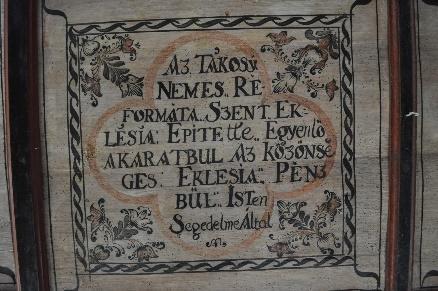 Az Tákosy
Nemes. Re-
formáta. Szent. Ek-
lésia: Epitette. Egyenlő
akaratbul Az közönsé
ges: Eklesia: Penz
bül.. Isten
Segedelme Által